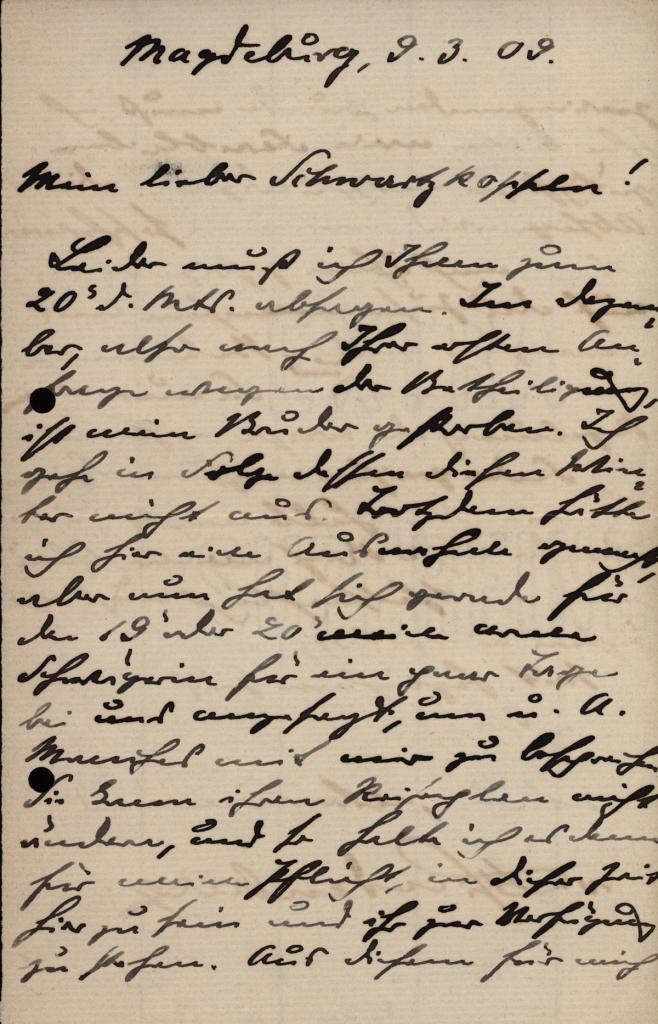 Magdeburg, 9. 3. 09.
Mein lieber Schwartzkoppen!
Leider muß ich Ihnen zum
20s d. Mts. absagen. Im Dezem-
ber, also nach Ihrer ersten An-
frage wegen der Betheiligung,
ist mein Bruder gestorben. Ich
gehe in Folge dessen diesen Win-
ter nicht aus. Trotzdem hätte
ich hier eine Ausnahme gemacht,
aber nun hat sich gerade für
den 19t oder 20t meine arme
Schwägerin für ein paar Tage
bei uns angesagt, um u. A.
Manches mit mir zu besprechen.
Sie kann ihren Reiseplan nicht
ändern, und so halte ich es denn
für meine Pflicht, in dieser Zeit
hier zu sein und ihr zur Verfügung
zu stehen. Aus diesem für mich